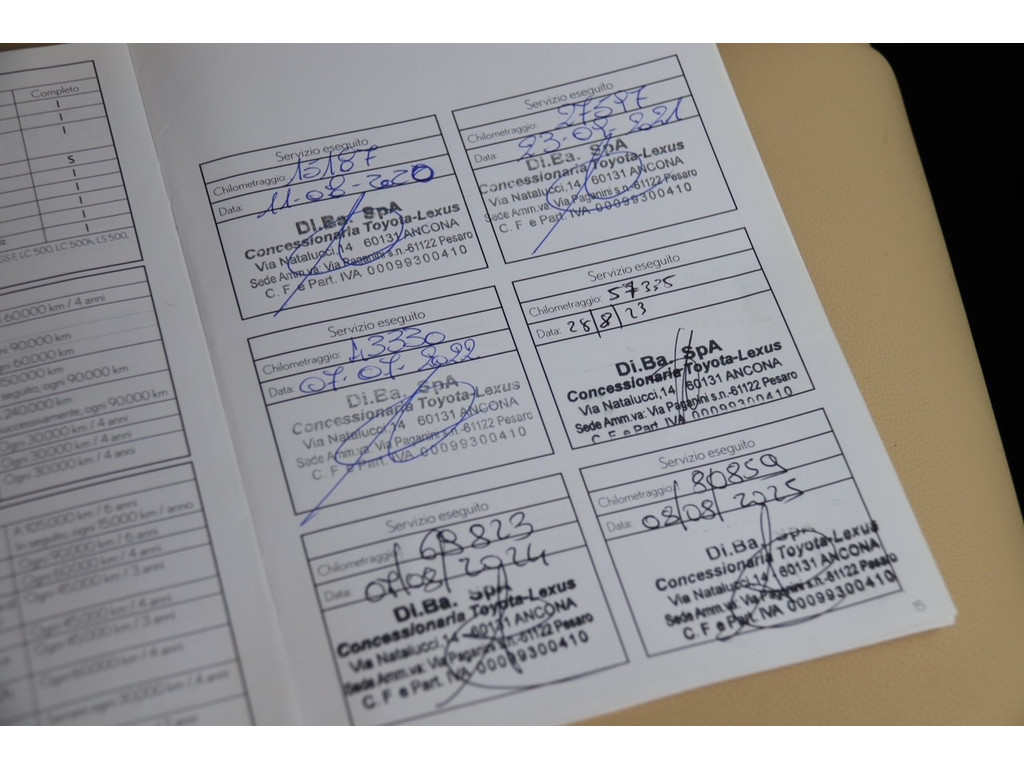 Completo
I
I
I
S
I
I
I
I
GS F, LC 500, LC 500h, LS 500,
60.000 km / 4 anni
ogni 90.000 km
ogni 60.000 km
150.000 km
seguito, ogni 90.000 km
240.000 km
ogni 90.000 km
Ogni 30.000 km / 4 anni
Ogni 30.000 km / 4 anni
Ogni 30.000 km / 4 anni
A 105.000 km / 6 anni
In seguito: ogni 15.000 km / anno
Servizio eseguito
Chilometraggio: 13187
Data: 11-08-2020
Di.Ba. SpA
Concessionaria Toyota-Lexus
Via Natalucci,14 60131 ANCONA
Sede Amm.va: Via Paganini s.n.-61122 Pesaro
C. F. e Part. IVA 00099300410
Servizio eseguito
Chilometraggio: 27597
Data: 23-07-2021
Di.Ba. SpA
Concessionaria Toyota-Lexus
Via Natalucci,14 60131 ANCONA
Sede Amm.va: Via Paganini s.n.-61122 Pesaro
C. F. e Part. IVA 00099300410
Servizio eseguito
Chilometraggio: 43330
Data: 07-07-2022
Di.Ba. SpA
Concessionaria Toyota-Lexus
Via Natalucci,14 60131 ANCONA
Sede Amm.va: Via Paganini s.n.-61122 Pesaro
C. F. e Part. IVA 00099300410
Servizio eseguito
Chilometraggio: 57335
Data: 28/8/23
Di.Ba. SpA
Concessionaria Toyota-Lexus
Via Natalucci,14 60131 ANCONA
Sede Amm.va: Via Paganini s.n.-61122 Pesaro
C. F. e Part. IVA 00099300410
Servizio eseguito
Chilometraggio: 68823
Data: 07/08/2024
Di.Ba. SpA
Concessionaria Toyota-Lexus
Via Natalucci,14 60131 ANCONA
Sede Amm.va: Via Paganini s.n.-61122 Pesaro
C. F. e Part. IVA 00099300410
Servizio eseguito
Chilometraggio: 80859
Data: 08/08/2025
Di.Ba. SpA
Concessionaria Toyota-Lexus
Via Natalucci,14 60131 ANCONA
Sede Amm.va: Via Paganini s.n.-61122 Pesaro
C. F. e Part. IVA 00099300410
15